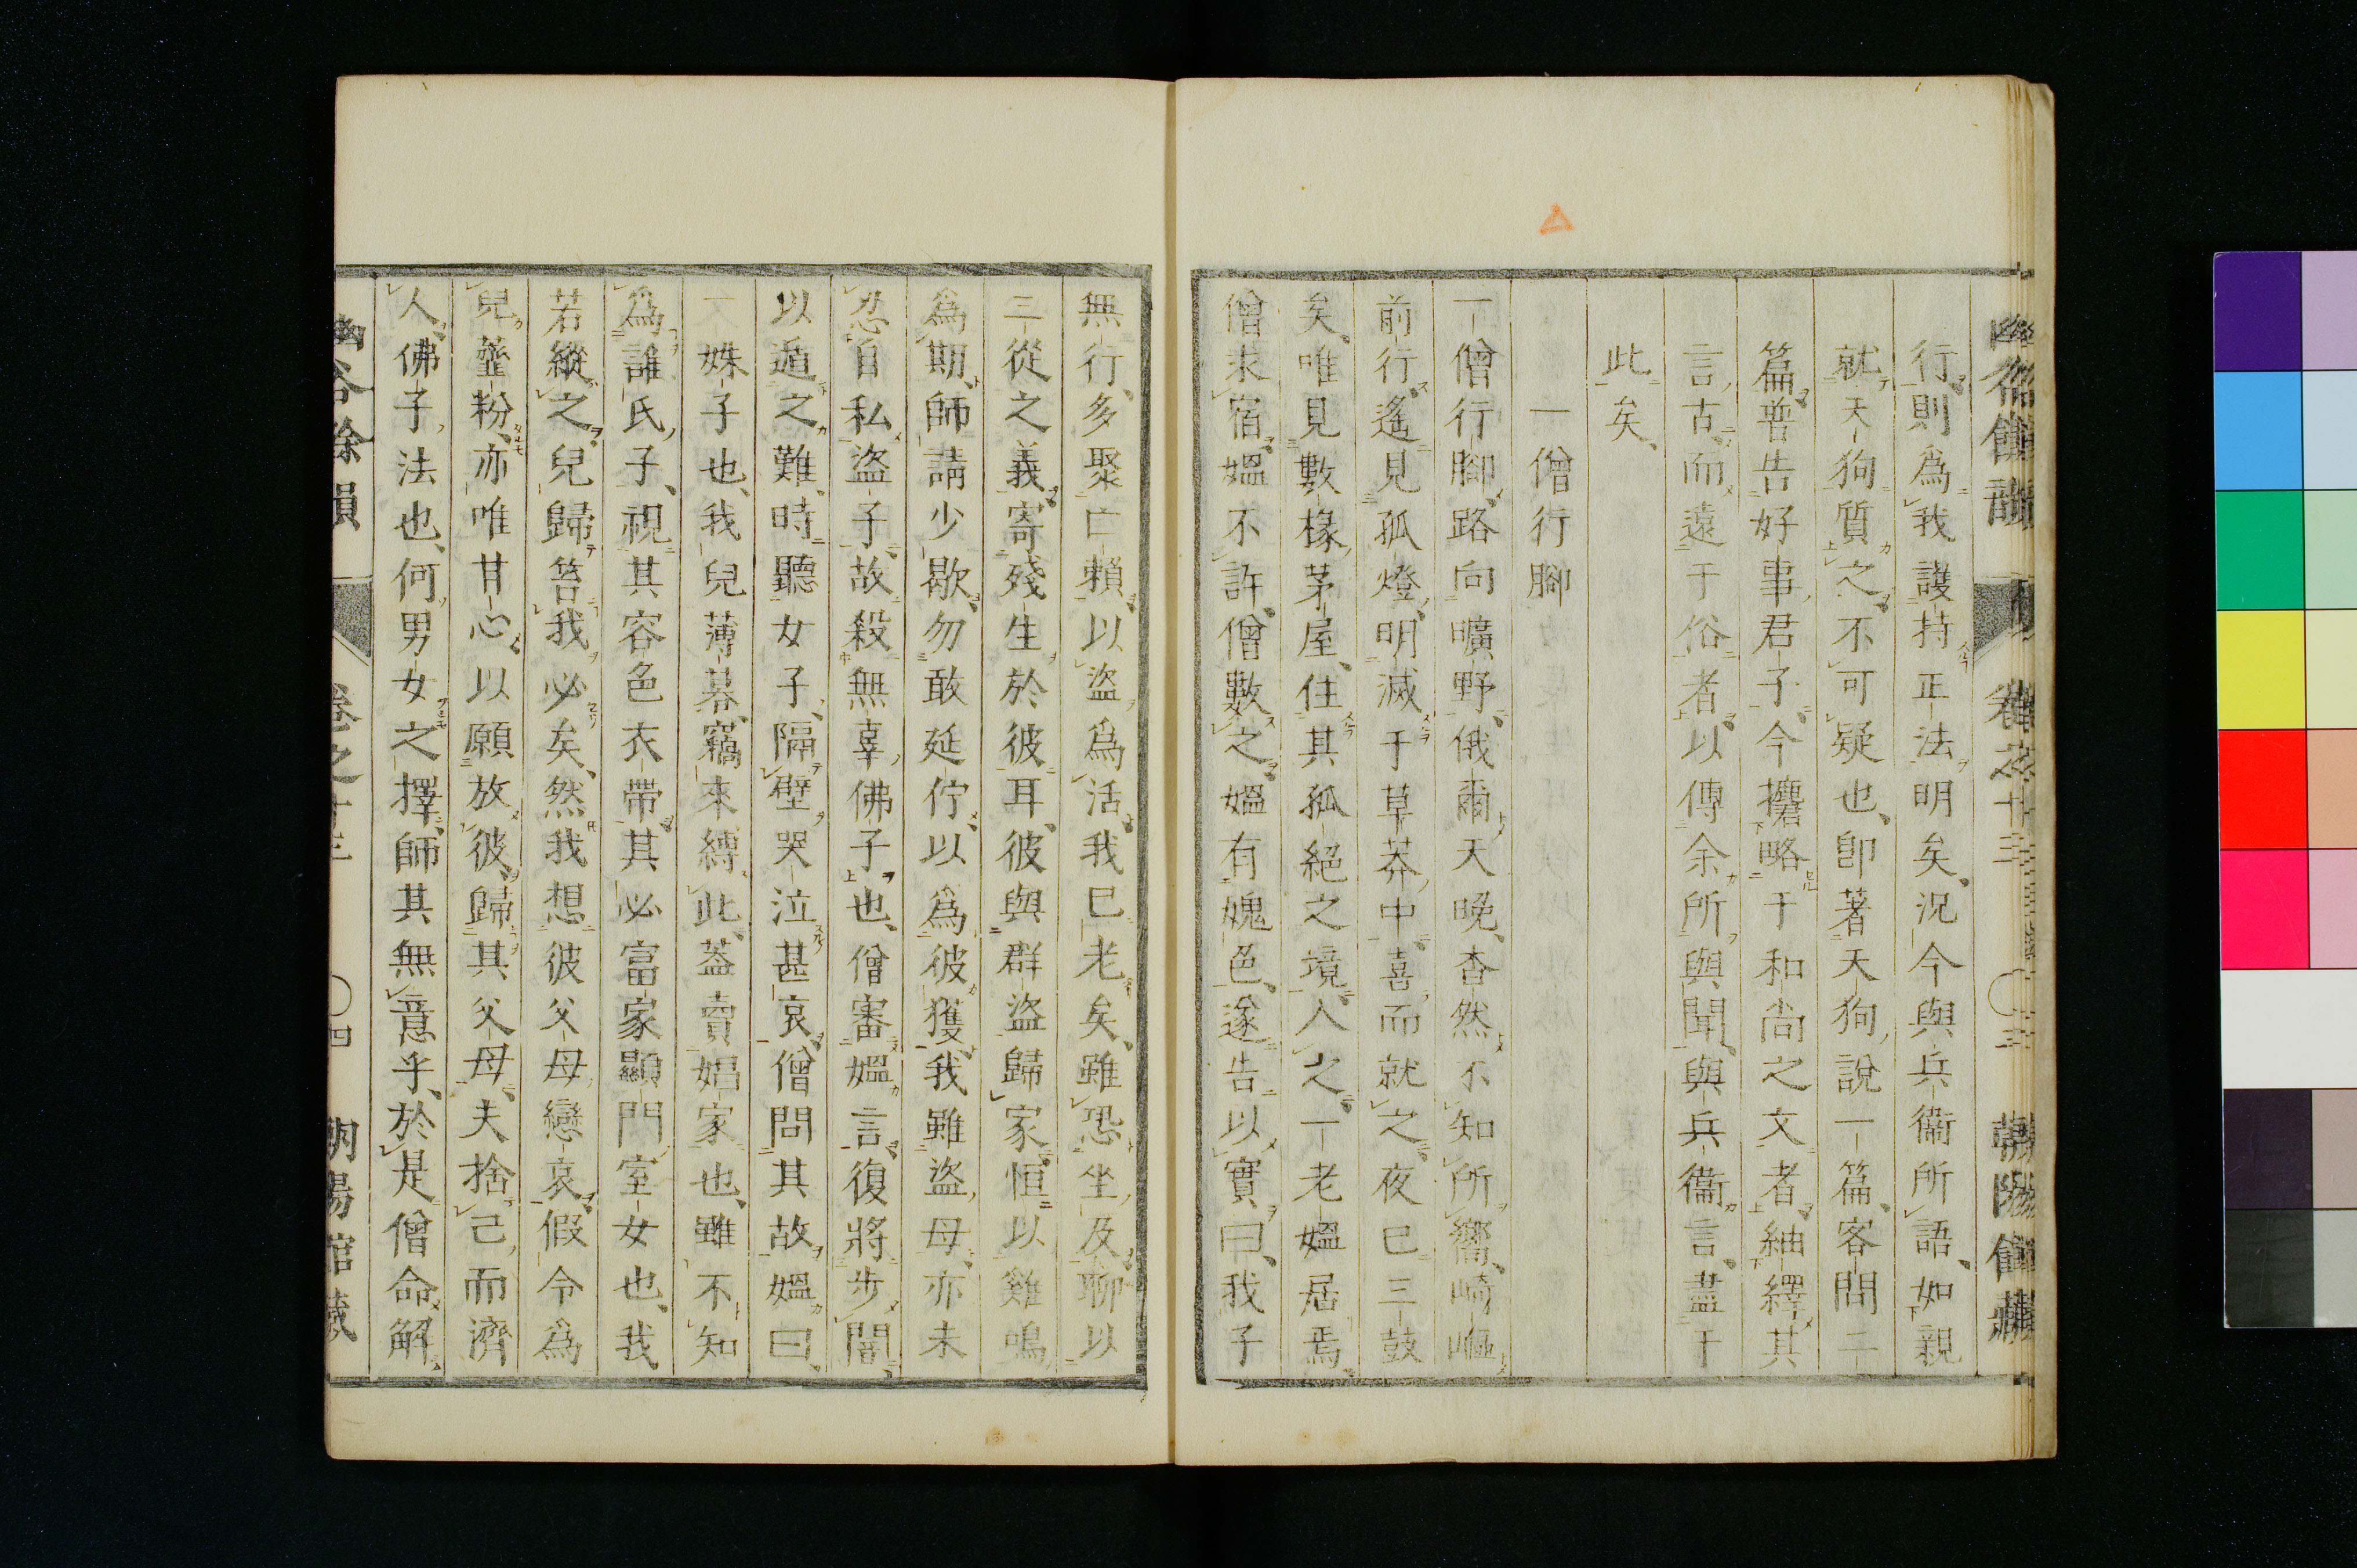 幽谷餘韻 卷之十三 〇三 朝陽館藏
行、則爲我護持正法明矣、況今與兵衞所語、如親
就天狗質之、不可疑也、卽著天狗說一篇、客問二
篇、普告好事君子、今攟略于和尚之文者、紬繹其
言、古而遠于俗者、以傳余所與聞、與兵衞言、盡于
此矣、
一僧行腳
一僧行腳、路向曠野、俄爾天晚、杳然不知所嚮、崎嶇
前行、遙見孤燈、明滅于草莽中、喜而就之、夜已三鼓
矣、唯見數椽茅屋、住其孤絕之境、入之、一老媼居焉、
僧求宿、媼不許、僧數之、媼有媿色、遂告以實曰、我子
無行、多聚亡賴、以盜爲活、我已老矣、雖恐坐及、聊以
三從之義、寄殘生於彼耳、彼與群盜歸家、恒以雞鳴
爲期、師請少歇、勿敢延佇、以爲彼獲、我雖盜母、亦未
忍自私盜子、故殺無辜佛子也、僧審媼言、復將步闇、
以遁之難、時聽女子、隔壁哭泣甚哀、僧問其故、媼曰、
一姝子也、我兒薄暮、竊來縛此、葢賣娼家也、雖不知
爲誰氏子、視其容色衣帶、其必富家顯門室女也、我
若縱之、兒歸笞我必矣、然我想彼父母戀哀、假令爲
兒虀粉、亦唯甘心、以願放彼歸其父母、夫捨己而濟
人、佛子法也、何男女之擇、師其無意乎、於是僧命解
幽谷餘韻 卷之十三 〇四 朝陽館藏